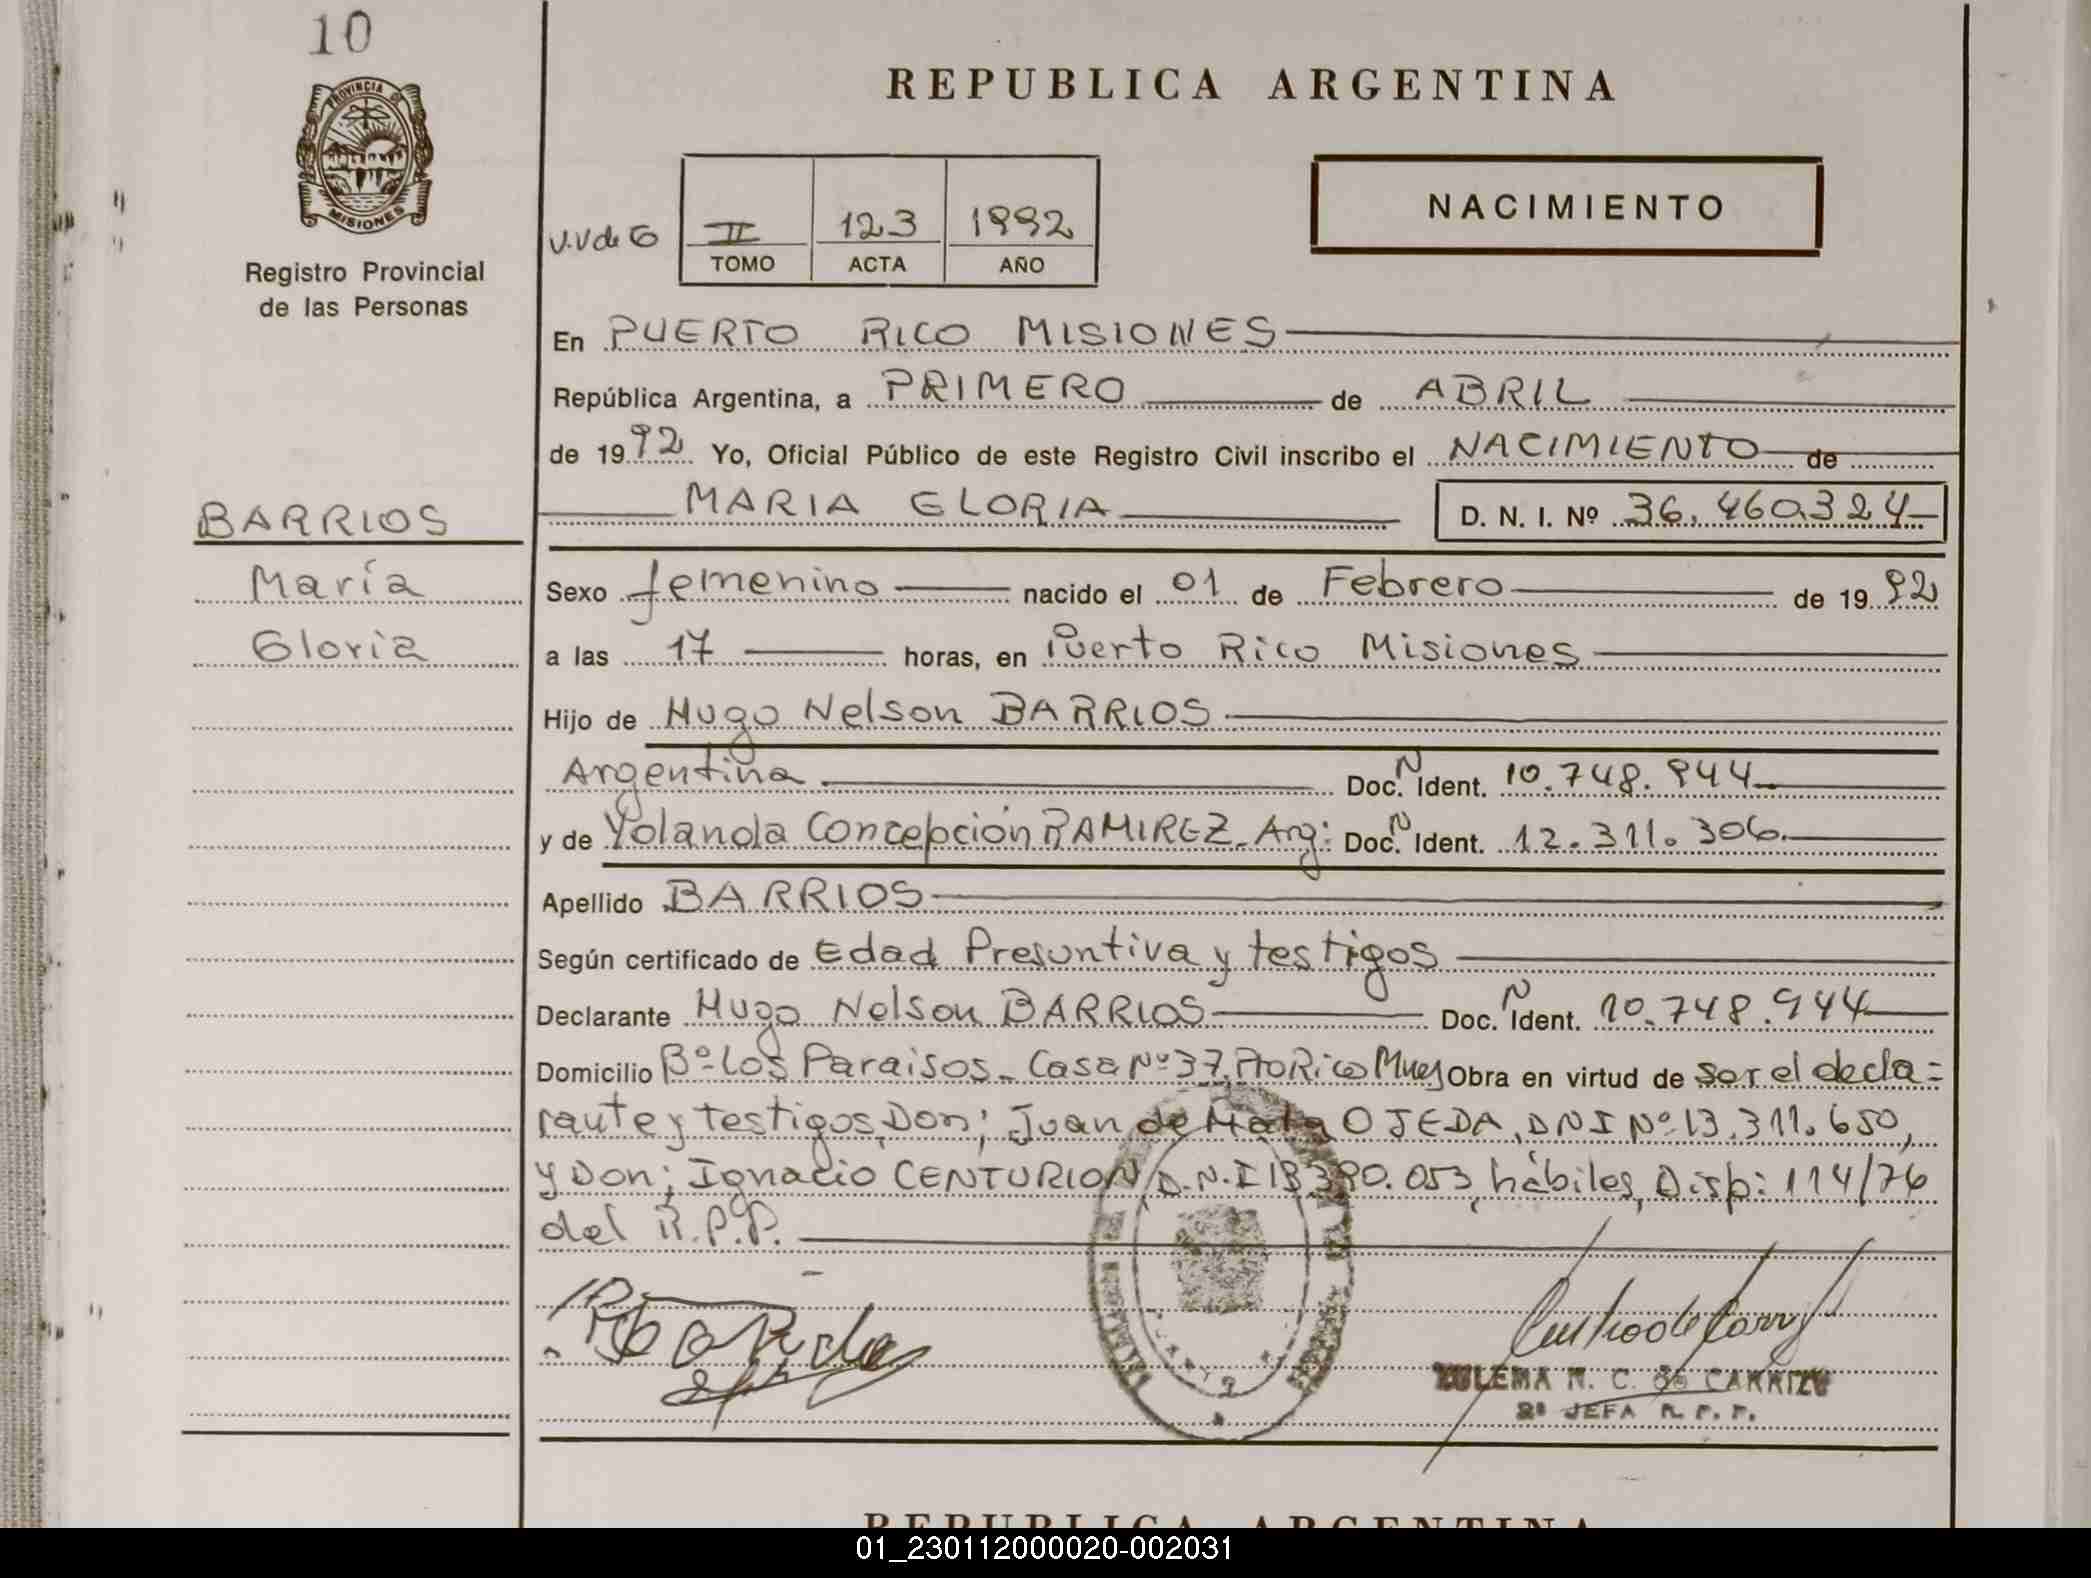 10
PROVINCIA DE
MISIONES
Registro Provincial
de las Personas
REPUBLICA ARGENTINA
NACIMIENTO
II 123 1992
TOMO ACTA AÑO
En PUERTO RICO MISIONES
República Argentina, a PRIMERO de ABRIL
de 1992 Yo, Oficial Público de este Registro Civil inscribo el NACIMIENTO de
MARIA GLORIA D. N. I. Nº 36.460324
BARRIOS
María
Gloria
Sexo femenino nacido el 01 de Febrero de 1992
a las 17 horas, en Puerto Rico Misiones
Hijo de Hugo Nelson BARRIOS
Argentina Doc. N Ident. 10.748.944
y de Yolanda Concepción RAMIREZ Arg: Doc. N Ident. 12.311.306
Apellido BARRIOS
Según certificado de Edad Presuntiva y testigos
Declarante Hugo Nelson BARRIOS Doc. N Ident. 10.748.944
Domicilio Bº Los Paraisos Casa Nº 37 Pto Rico Mnes Obra en virtud de ser el decla=
rante y testigos, Don; Juan de Mata OJEDA, DNI Nº 13.311.650,
y Don; Ignacio CENTURION, D.N.I 18.390.053, hábiles, Disp: 114/76
del R.P.P.
ZULEMA N. C. de CARRIZO
2ª JEFA R. P. P.
REPUBLICA ARGENTINA
01_230112000020-002031